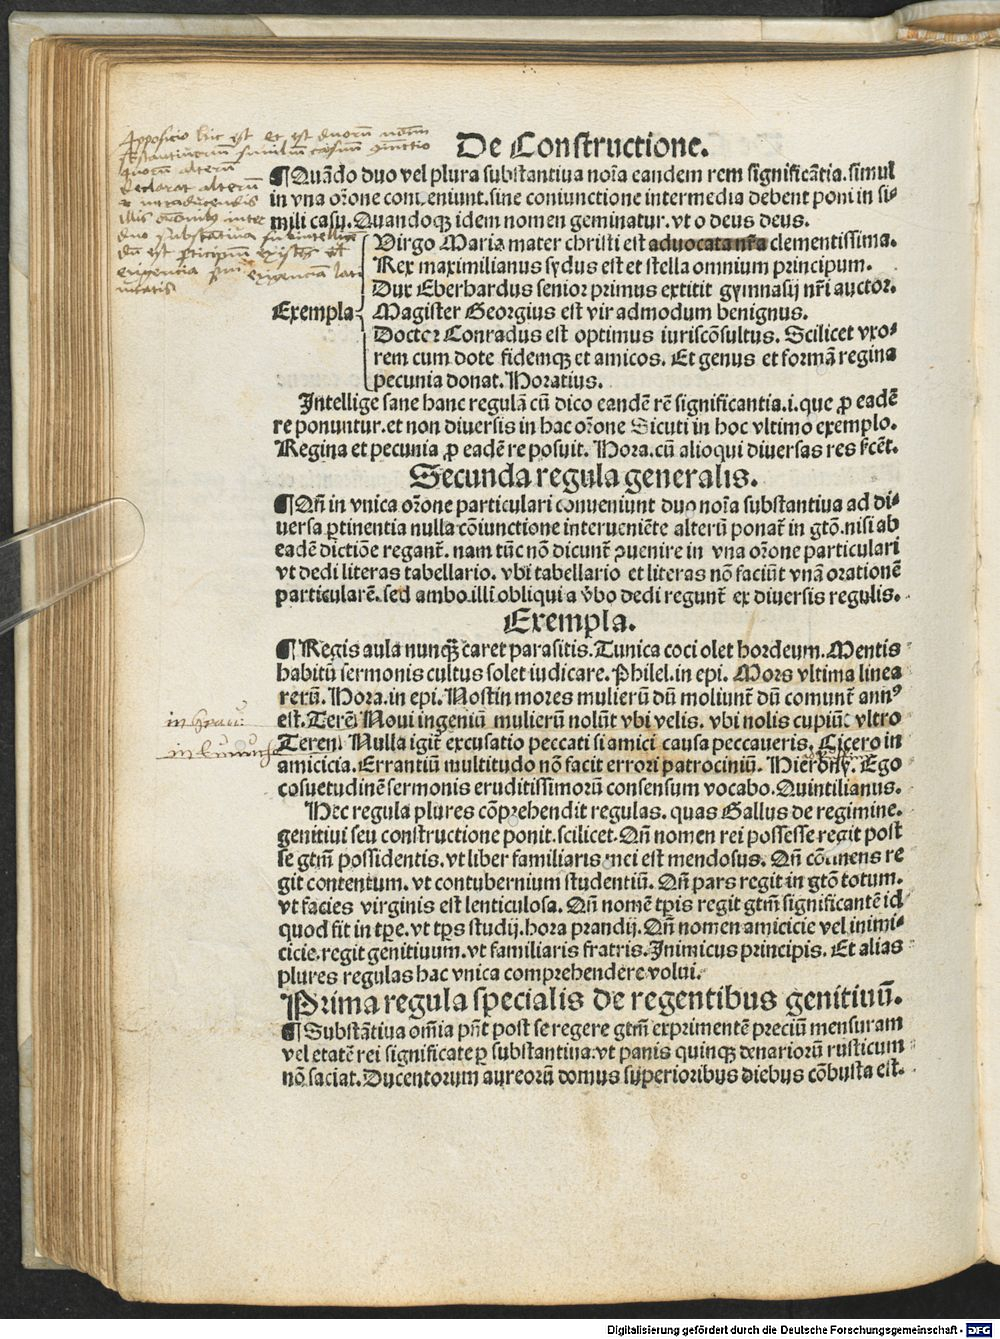 De Constructione.
¶ Quãdo duo vel plura substantiua noĩa eandem rem significãtia. simul
in vna oĩone conueniunt. sine coniunctione intermedia debent poni in si⸗
mili casu. Quandoqꝫ idem nomen geminatur. vt o deus deus.
Virgo Maria mater christi est aduocata nr̃a clementissima.
Rex maximilianus sydus est et stella omnium principum.
Dux Eberhardus senior primus extitit gymnasij nr̃i auctor.
Exempla Magister Georgius est vir admodum benignus.
Doctor Conradus est optimus iuriscõsultus. Scilicet vxo⸗
rem cum dote fidemqꝫ et amicos. Et genus et formã regina
pecunia donat. Horatius.
Intellige sane hanc regulã cũ dico eandẽ rẽ significantia .i. que ꝓ eadẽ
re ponuntur. et non diuersis in hac oĩone Sicuti in hoc vltimo exemplo.
Regina et pecunia ꝓ eadẽ re posuit. Hora. cũ alioqui diuersas res
Secunda regula generalis.
¶ Qñ in vnica oĩone particulari conueniunt duo noĩa substantiua ad di⸗
uersa ꝑtinentia nulla cõiunctione interueniẽte alterũ ponat̃ in gtõ. nisi ab
eadẽ dictiõe regant̃. nam tũc nõ dicunt̃ ꝯuenire in vna oĩone particulari
vt dedi literas tabellario. vbi tabellario et literas nõ faciũt vnã orationẽ
particularẽ. sed ambo. illi obliqui a v̾bo dedi regunt̃ ex diuersis regulis.
Exempla.
¶ Regis aula nunqͣꝫ caret parasitis. Tunica coci olet hordeum. Mentis
habitũ sermonis cultus solet iudicare. Philel. in epi. Mors vltima linea
rerũ. Hora. in epi. Nostin mores mulierũ dũ moliunt̃ dũ comunt̃ annꝰ
est. Terẽ. Noui ingeniũ mulierũ nolũt vbi velis. vbi nolis cupiũt vltro
in Heau:
Teren. Nulla igit̃ excusatio peccati si amici causa peccaueris. Cicero in
in Eunucho
amicicia. Errantiũ multitudo nõ facit errori patrociniũ. Hierony. Ego
cõsuetudinẽ sermonis eruditissimorũ consensum vocabo. Quintilianus.
Hec regula plures cõprehendit regulas. quas Gallus de regimine.
genitiui seu constructione ponit. scilicet. Qñ nomen rei possesse regit post
se gtm̃ possidentis. vt liber familiaris mei est mendosus. Qñ cõtinens re
git contentum. vt contubernium studentiũ. Qñ pars regit in gtõ totum.
vt facies virginis est lenticulosa. Qñ nomẽ tꝑis regit gtm̃ significantẽ id
quod fit in tꝑe. vt tꝑs studij. hora prandij. Qñ nomen amicicie vel inimi⸗
cicie. regit genitiuum. vt familiaris fratris. Inimicus principis. Et alias
plures regulas hac vnica comprehendere volui.
Prima regula specialis de regentibus genitiuũ.
¶ Substãtiua om̃ia pñt post se regere gtm̃ exprimentẽ preciũ mensuram
vel etatẽ rei significate ꝑ substantiua. vt panis quinqꝫ denariorũ rusticum
nõ saciat. Ducentorum aureorũ domus superioribus diebus cõbusta est.
Digitalisierung gefördert durch die Deutsche Forschungsgemeinschaft - DFG